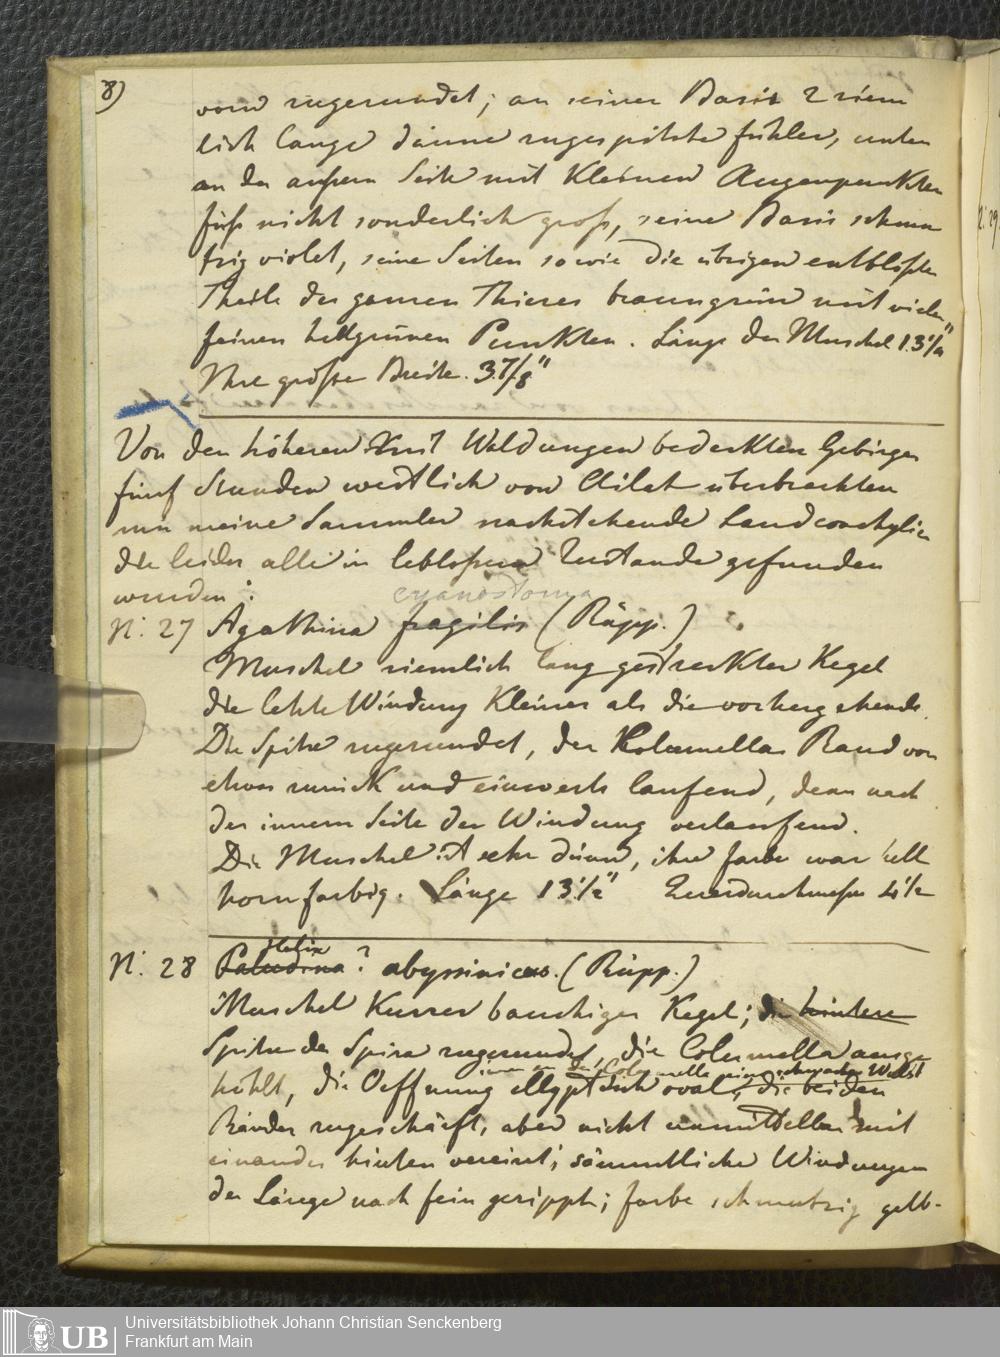 8)
vorn zugerundet; an seiner Basis 2 ziem
lich lange dünne zugespitzte fühler, unten
an der aufsern Seite mit kleinen Augenpunkten
fufs nicht sonderlich grofs, seine Basis schmu
tzig violet, seine Seiten sowie die übrigen entblöfsten
Theile des ganzen Thieres braungrün mit vielen
feinen hellgrünen Punkten. Länge der Muschel 13½"
Ihre gröfste Breite. 3 7/8"
Von den höheren mit Waldungen bedeckten Gebirgen
fünf Stunden westlich von Ailat überbrachten
mir meine Sammler nachstehende Landconchylien
die leider alle in leblosem Zustande gefunden
wurden:
cyanostoma
N: 27 Agathina fragilis (Rüpp.)
Muschel ziemlich lang gestreckter Kegel
die letzte Windung kleiner als die vorhergehende.
Die Spitze zugerundet, der Kolumella Rand von
etwas zurück und einwerts laufend, dann nach
der innern Seite der Windung verlaufend.
Die Muschel ist sehr dünn, ihre farbe war hell
hornfarbig. Länge 13½" Querdurchmesser 4½
Helix
N: 28 Paludina? abyssinicus. (Rüpp.)
Muschel kurzer bauchiger Kegel; die hintere
Spitze der Spira zugerundet, die Columella ausge
an der Columella ein schwacher Wulst
höhlt, die Oeffnung ellyptisch oval, die beiden
Ränder zugeschärft, aber nicht unmittelbar mit
einander hinten vereint; sämmtliche Windungen
der Länge nach fein gerippt; farbe schmutzig gelb-
UB
Universitätsbibliothek Johann Christian Senckenberg
Frankfurt am Main